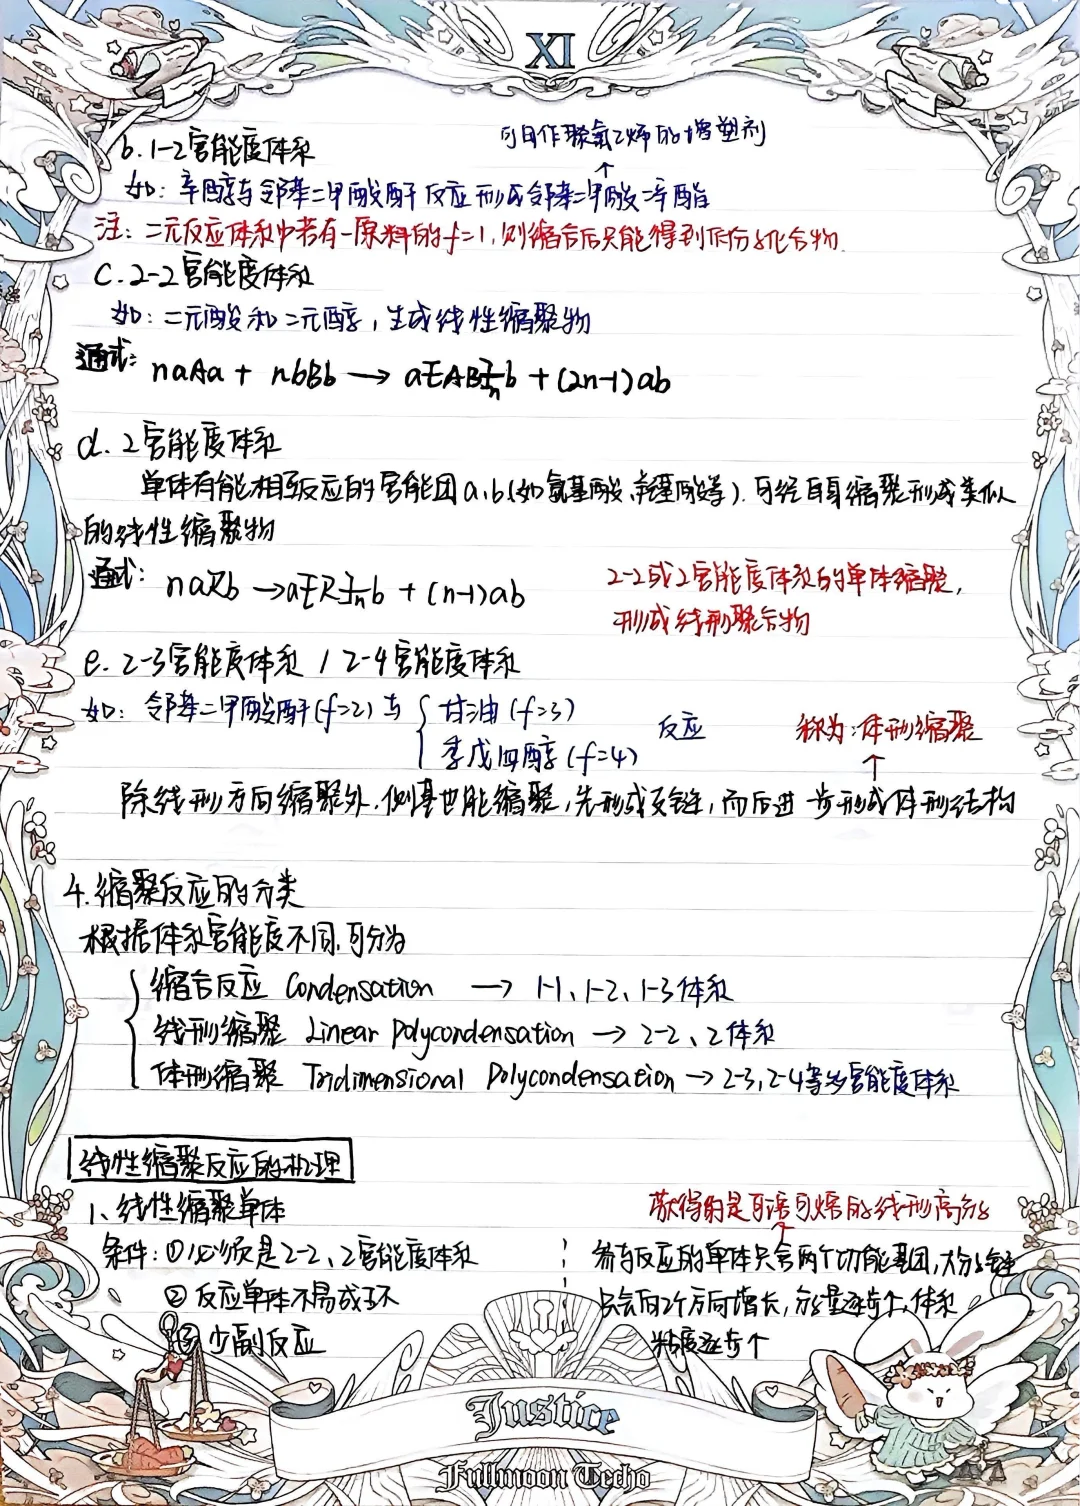 XI
b. 1-2官能度体系
可用作聚氯乙烯的增塑剂
↑
如: 辛醇与邻苯二甲酸酐反应形成邻苯二甲酸二辛酯
注: 二元反应体系中若有一原料的f=1, 则缩合后只能得到低分子化合物.
C. 2-2官能度体系
如: 二元酸和二元醇, 生成线性缩聚物
通式: naAa + nbBb → a[AB]ₙb + (2n-1)ab
d. 2官能度体系
单体有能相互反应的官能团a、b(如氨基酸、羟基酸等). 可经自身缩聚形成类似
的线性缩聚物
通式: naRb → a[R]ₙb + (n-1)ab
2-2或2官能度体系的单体缩聚,
形成线形聚合物
e. 2-3官能度体系 / 2-4官能度体系
如: 邻苯二甲酸酐(f=2)与 { 甘油(f=3)
季戊四醇(f=4)
反应
称为:体形缩聚
↑
除线形方向缩聚外, 侧基也能缩聚, 先形成支链, 而后进一步形成体形结构
4. 缩聚反应的分类
根据体系官能度不同, 可分为
缩合反应 Condensation → 1-1、1-2、1-3体系
线形缩聚 Linear Polycondensation → 2-2、2体系
体形缩聚 Tridimensional Polycondensation → 2-3, 2-4等多官能度体系
线性缩聚反应的机理
1、线性缩聚单体
获得的是可溶可熔的线形高分子
↑
条件: ①必须是2-2、2官能度体系
②反应单体不易成环
③少副反应
参与反应的单体只含两个功能基团, 大分子链
只会向2个方向增长, 分子量逐步↑, 体系
粘度逐步↑
Justice
Fullmoon Techo